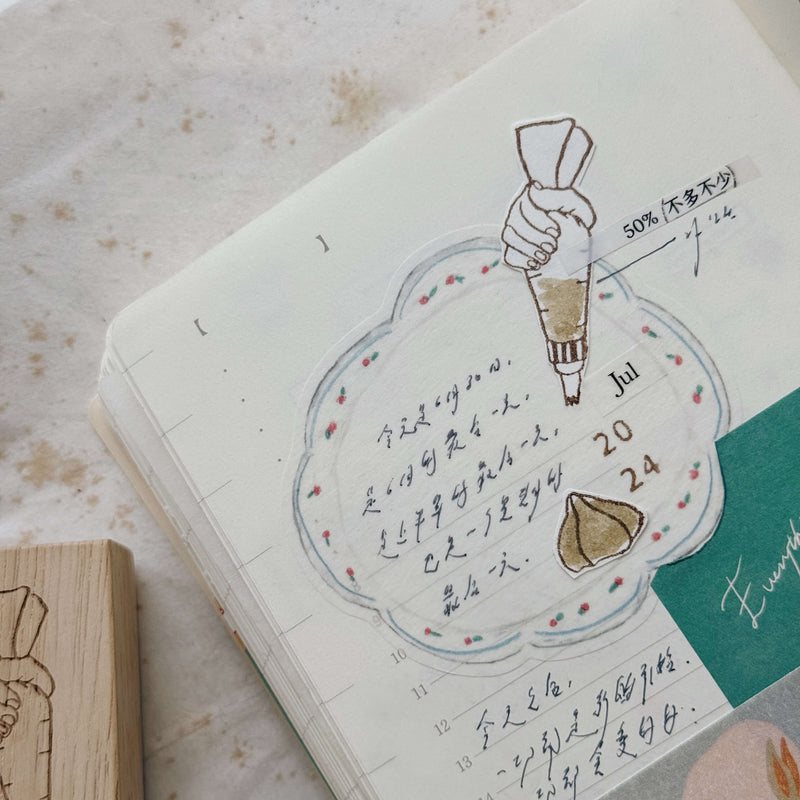 50% (不多不少)
今天是6月30日，
是6月的最后一天，
是上半年的最后一天，
也是一个星期的
最后一天．
Jul
20
24
9
10
11
12
13
14
今天之后，
一切都是新的引擎．
一切都会变好的．